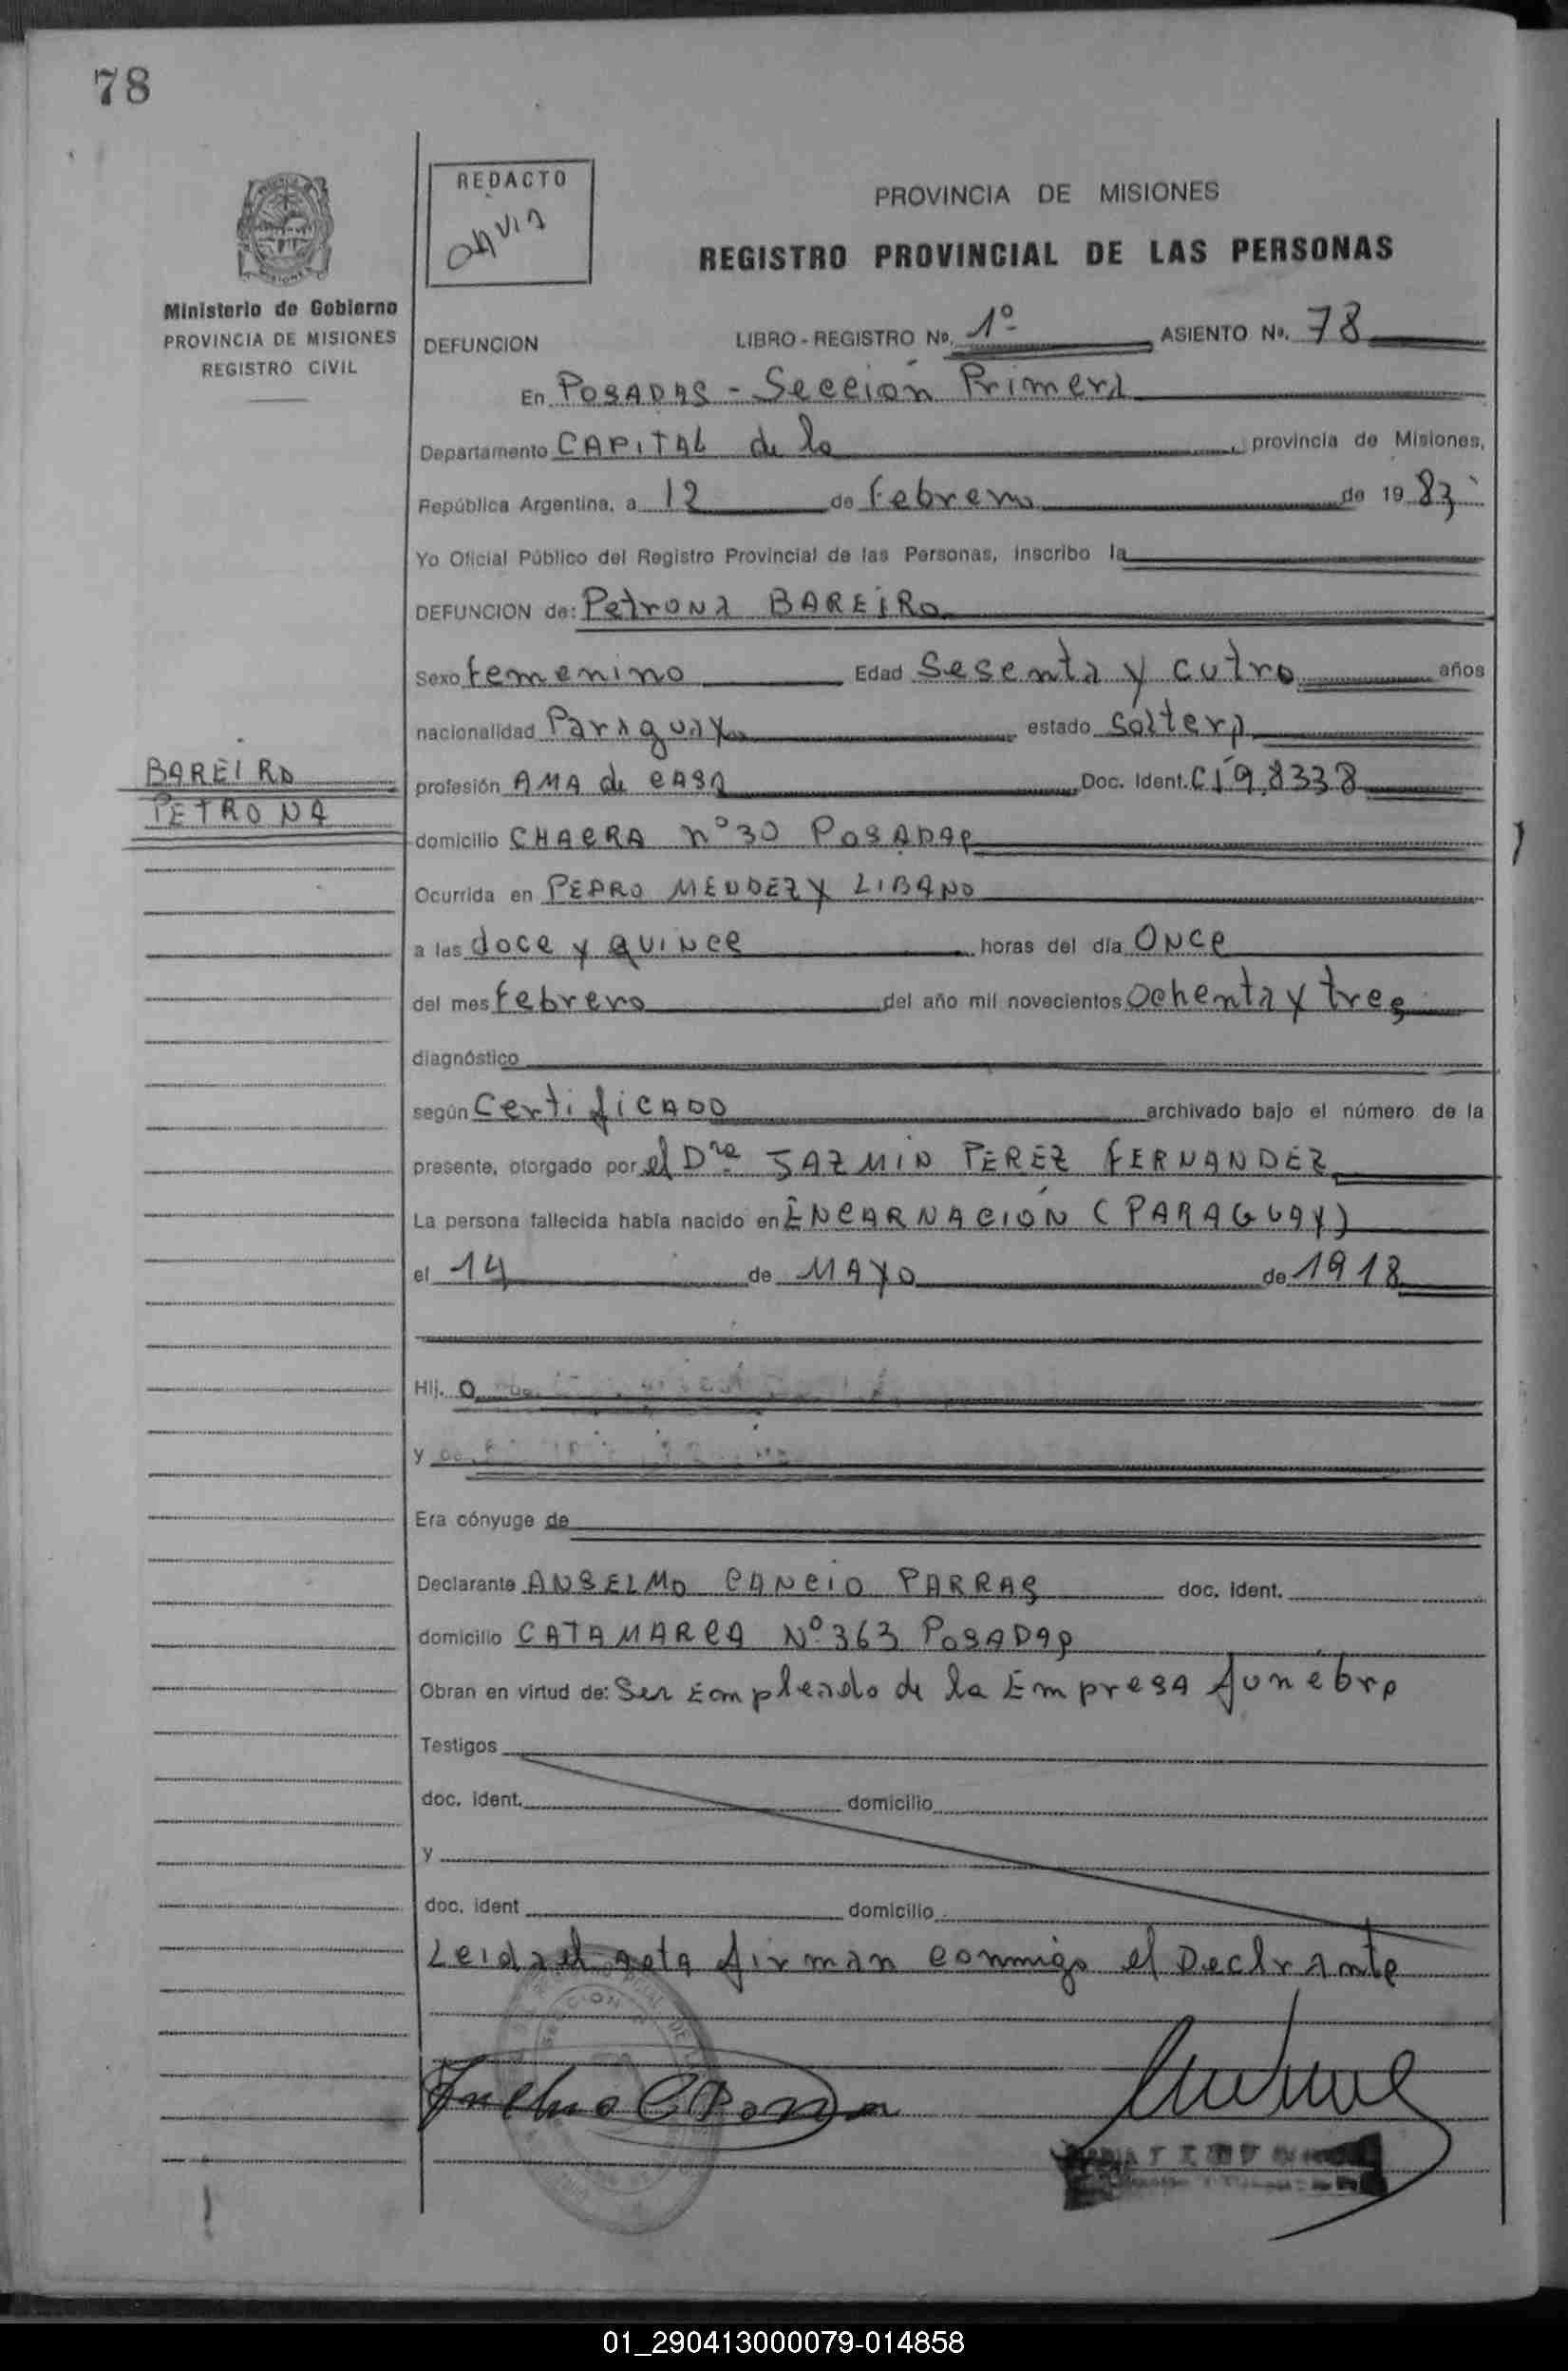 78
REDACTO
PROVINCIA DE MISIONES
REGISTRO PROVINCIAL DE LAS PERSONAS
Ministerio de Gobierno
PROVINCIA DE MISIONES
REGISTRO CIVIL
DEFUNCION LIBRO - REGISTRO Nº. 1º ASIENTO Nº. 78
En POSADAS - Sección Primera
Departamento CAPITAL de la , provincia de Misiones,
República Argentina, a 12 de Febrero de 19 83
Yo Oficial Público del Registro Provincial de las Personas, inscribo la
DEFUNCION de: Petrona BAREIRO
Sexo femenino Edad Sesenta y cutro años
nacionalidad Paraguaya estado Soltera
BAREIRO
PETRONA
profesión AMA de CASA Doc. Ident. CI 98338
domicilio CHACRA nº 30 POSADAS
Ocurrida en PEDRO MENDEZ Y LIBANO
a las doce y quince horas del día Once
del mes febrero del año mil novecientos Ochenta y tres
diagnóstico
según Certificado archivado bajo el número de la
presente, otorgado por el Dra JAZMIN PEREZ FERNANDEZ
La persona fallecida había nacido en ENCARNACION (PARAGUAY)
el 14 de MAYO de 1918
Hij. o
y
Era cónyuge de
Declarante ANSELMO CANCIO PARRAS doc. ident.
domicilio CATAMARCA Nº 363 POSADAS
Obran en virtud de: Ser Empleado de la Empresa fúnebre
Testigos
doc. ident. domicilio
y
doc. ident domicilio
Leida el acta firman conmigo el Declrante
01_290413000079-014858